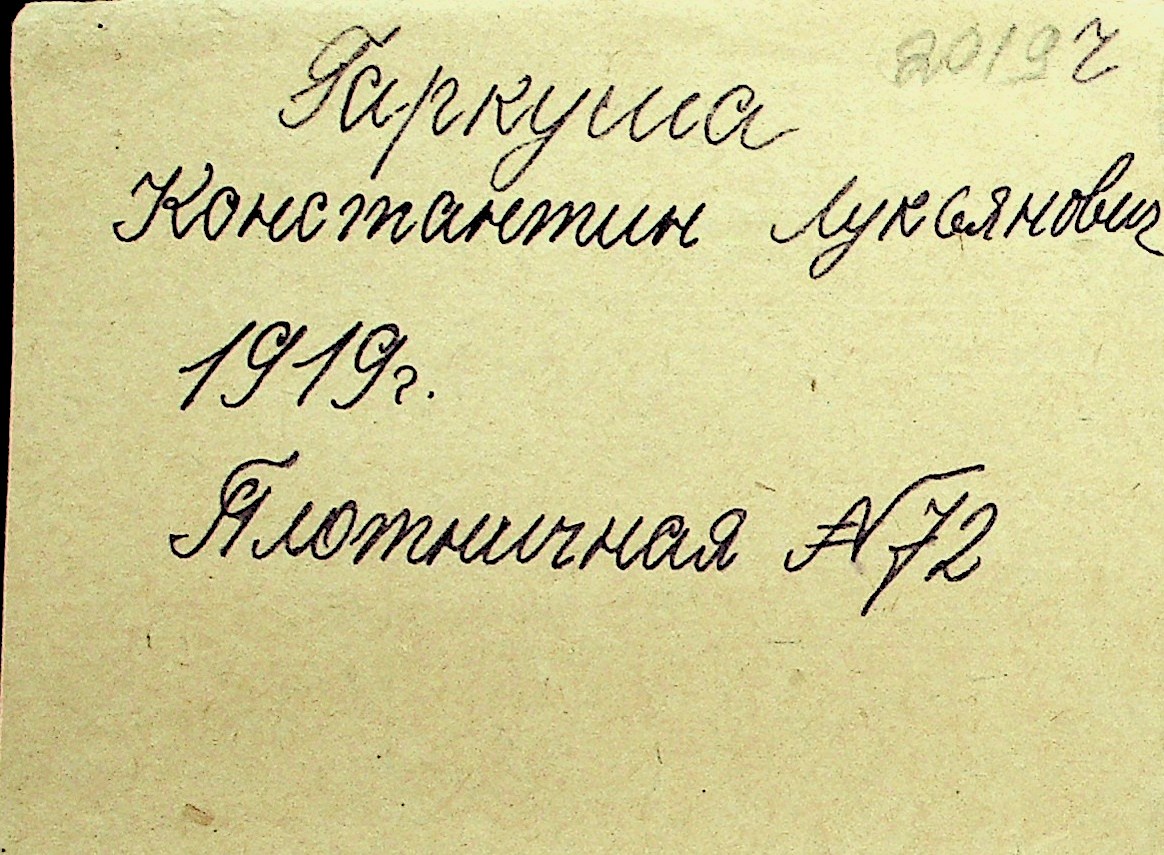 2019 ч
Гаркуша
Константин Лукьянович
1919г.
Плотничная №72